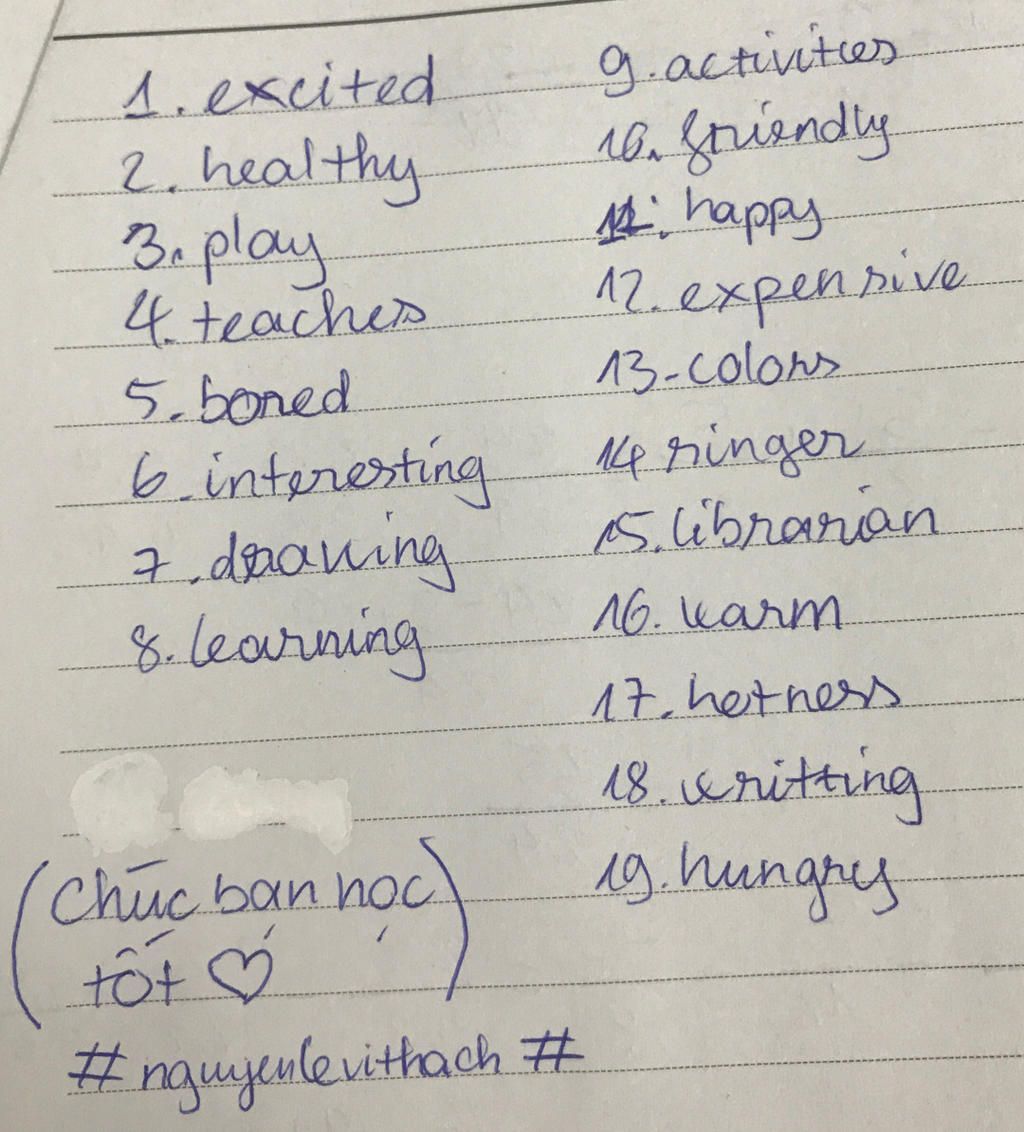 1. excited
2. healthy
3. play
4. teaches
5. bored
6. interesting
7. drawing
8. learning
9. activities
10. friendly
11. happy
12. expensive
13. colors
14. singer
15. librarian
16. warm
17. hotness
18. writting
19. hungry
(Chúc bạn học
tốt ♡)
#nguyenlevithach#